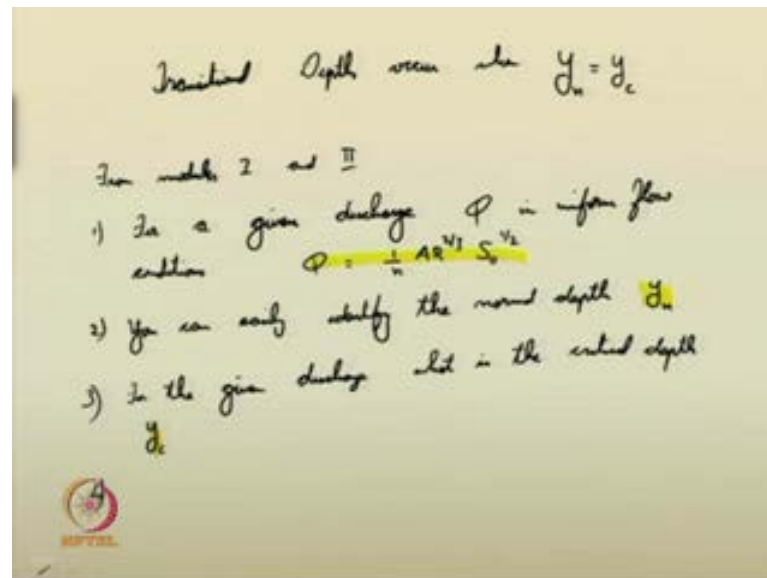 Transitional Depth occurs when yₙ = y_c
From modules I and II
1) For a given discharge Q in uniform flow
condition Q = 1/n AR^2/3 S₀^1/2
2) You can easily identify the normal depth yₙ
3) For the given discharge what is the critical depth
y_c
NPTEL